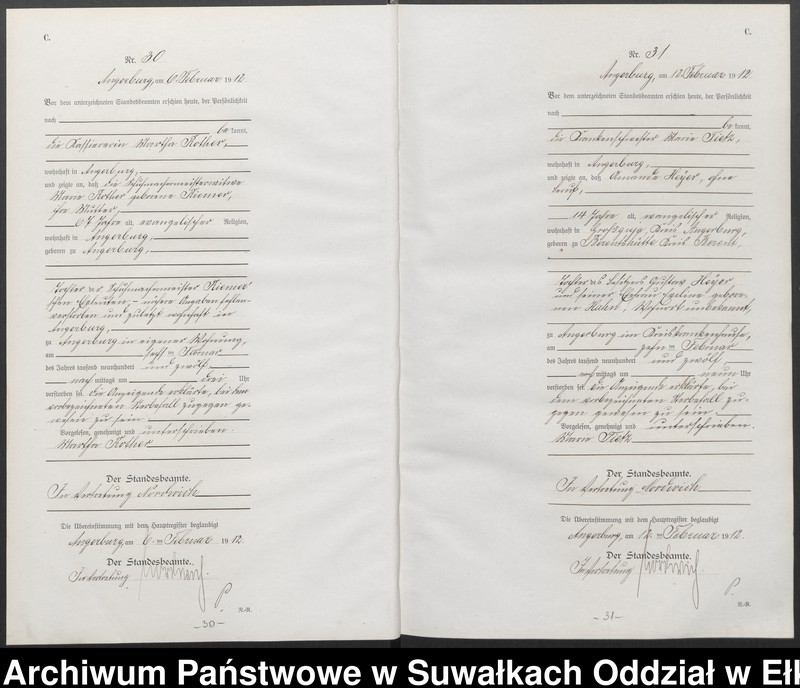 C.
Nr. 30
Angerburg, am 6. Februar 1912.
Vor dem unterzeichneten Standesbeamten erschien heute, der Persönlichkeit
nach
be kannt,
die Kassiererin Martha Rother,
wohnhaft in Angerburg,
und zeigte an, daß die Schuhmachermeisterwitwe
Marie Rother geborene Kiemer,
ihre Mutter,
67 Jahre alt, evangelischer Religion,
wohnhaft in Angerburg,
geboren zu Angerburg,
Tochter der Schuhmachermeister Kiemer
schen Eheleute, nähere Angaben fehlen
verstorben und zuletzt wohnhaft in
Angerburg,
zu Angerburg in eigener Wohnung,
am sechsten Februar
des Jahres tausend neunhundert und zwölf
nach mittags um drei Uhr
verstorben sei. Die Anzeigende erklärte, bei dem
vorbezeichneten Sterbefall zugegen ge-
wesen zu sein.
Vorgelesen, genehmigt und unterschrieben.
Martha Rother
Der Standesbeamte.
In Vertretung
Die Übereinstimmung mit dem Hauptregister beglaubigt
Angerburg, am 6. ten Februar 1912.
Der Standesbeamte.
In Vertretung
N.-R.
-30-
C.
Nr. 31
Angerburg, am 12. Februar 1912.
Vor dem unterzeichneten Standesbeamten erschien heute, der Persönlichkeit
nach
be kannt,
die Krankenschwester Marie Tietz,
wohnhaft in Angerburg,
und zeigte an, daß Amanda Heyer, ohne
Beruf,
14 Jahre alt, evangelischer Religion,
wohnhaft in Großguja, Kreis Angerburg,
geboren zu Berentshütte Kreis Berent,
Tochter des Besitzers Gustav Heyer
und seiner Ehefrau geborenen
Hahn, Wohnort unbekannt,
zu Angerburg im Kreiskrankenhause,
am zehnten Februar
des Jahres tausend neunhundert und zwölf,
nach mittags um neun Uhr
verstorben sei. Die Anzeigende erklärte, bei
dem vorbezeichneten Sterbefall zu-
gegen gewesen zu sein.
Vorgelesen, genehmigt und unterschrieben.
Marie Tietz
Der Standesbeamte.
In Vertretung
Die Übereinstimmung mit dem Hauptregister beglaubigt
Angerburg, am 12. ten Februar 1912.
Der Standesbeamte.
In Vertretung
N.-R.
-31-
Archiwum Państwowe w Suwałkach Oddział w Ełk